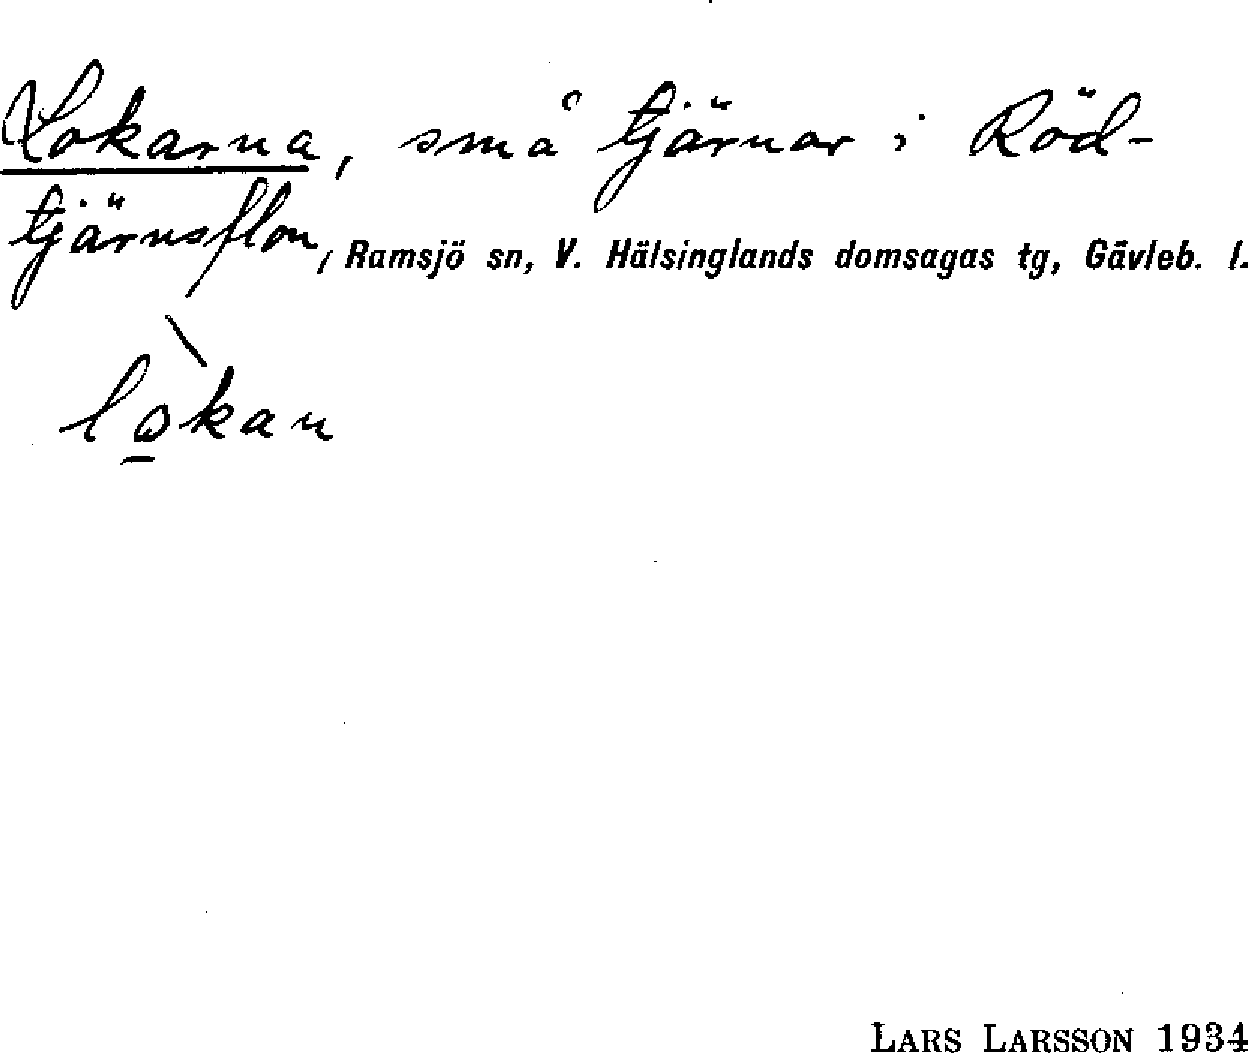 Lokarna, små tjärnar i Röd-
tjärnsflon, Ramsjö sn, V. Hälsinglands domsagas tg, Gävleb. l.
\
lo̲kan
LARS LARSSON 1934